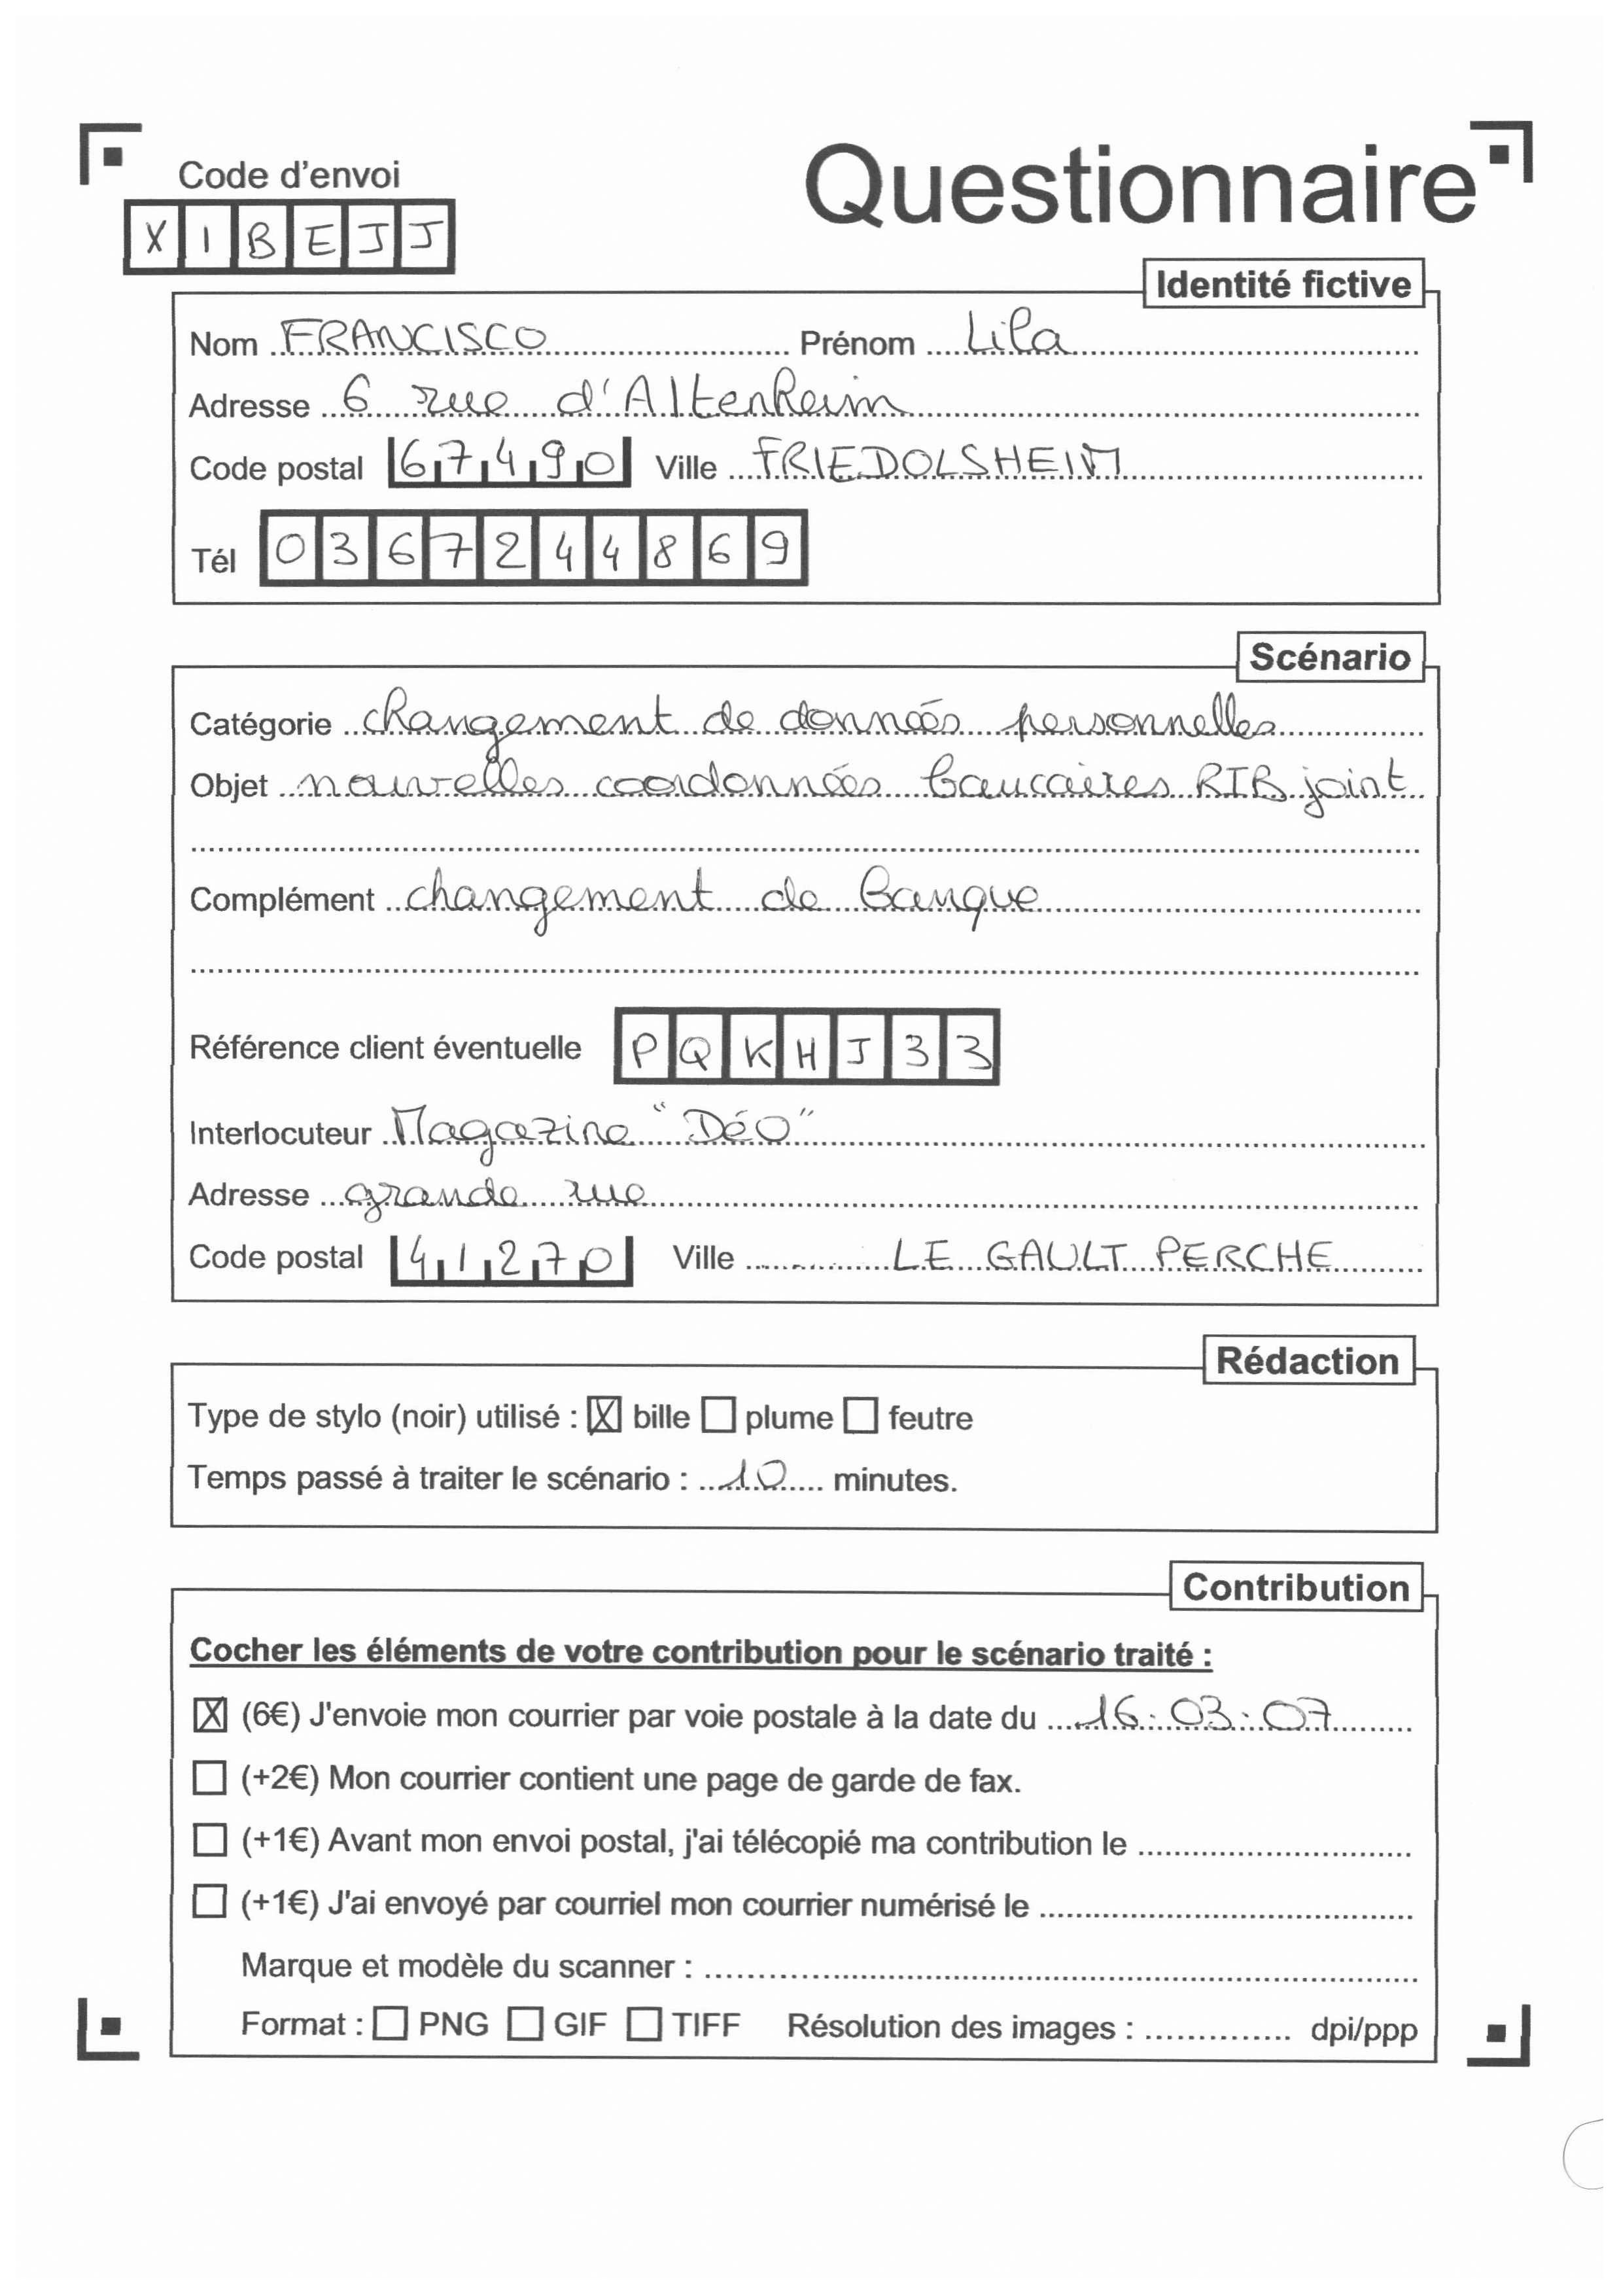 Code d'envoi
Questionnaire
XIBEJJ
Identité fictive
Nom FRANCISCO Prénom Lila
Adresse 6 rue d'Altenheim
Code postal 67490 Ville FRIEDOLSHEIM
Tél 0367244869
Scénario
Catégorie changement de données personnelles
Objet nouvelles coordonnées bancaires RIB joint
Complément changement de banque
Référence client éventuelle PQKHJ33
Interlocuteur Magazine "DéO"
Adresse grande rue
Code postal 41270 Ville LE GAULT PERCHE
Rédaction
Type de stylo (noir) utilisé : ☒ bille ☐ plume ☐ feutre
Temps passé à traiter le scénario : 10 minutes.
Contribution
Cocher les éléments de votre contribution pour le scénario traité :
☒ (6€) J'envoie mon courrier par voie postale à la date du 16.03.07
☐ (+2€) Mon courrier contient une page de garde de fax.
☐ (+1€) Avant mon envoi postal, j'ai télécopié ma contribution le
☐ (+1€) J'ai envoyé par courriel mon courrier numérisé le
Marque et modèle du scanner :
Format : ☐ PNG ☐ GIF ☐ TIFF Résolution des images : dpi/ppp